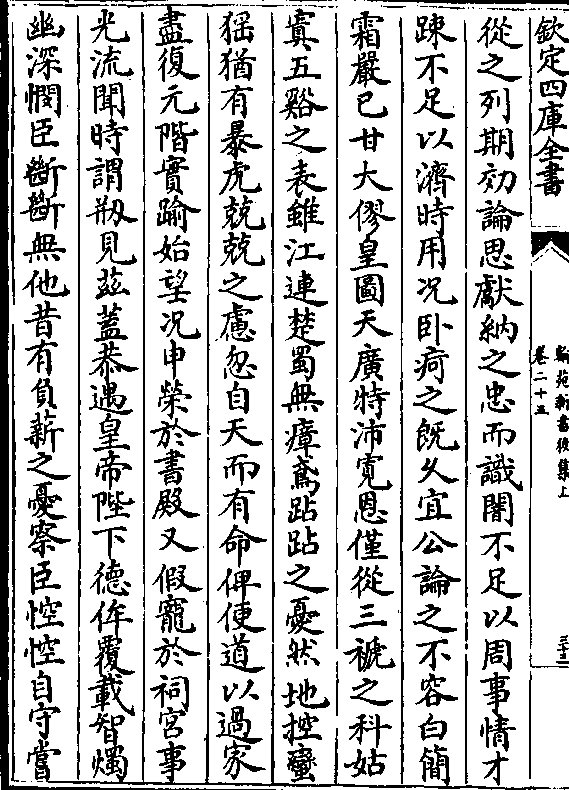 欽定四庫全書
翰苑新書後集上
卷二十五
三十三
從之列期効論思獻納之忠而識闇不足以周事情才
踈不足以濟時用况卧痾之既久宜公論之不容白簡
霜嚴已甘大僇皇圖天廣特沛寛恩僅從三褫之科姑
寘五谿之表雖江連楚蜀無瘴鳶跕跕之憂然地控蠻
猺猶有暴虎兢兢之慮忽自天而有命俾便道以過家
盡復元階實踰始望况申榮於書殿又假寵於祠宫事
光流聞時謂剏見兹蓋恭遇皇帝陛下德侔覆載智燭
幽深憫臣斷斷無他昔有負薪之憂察臣悾悾自守嘗